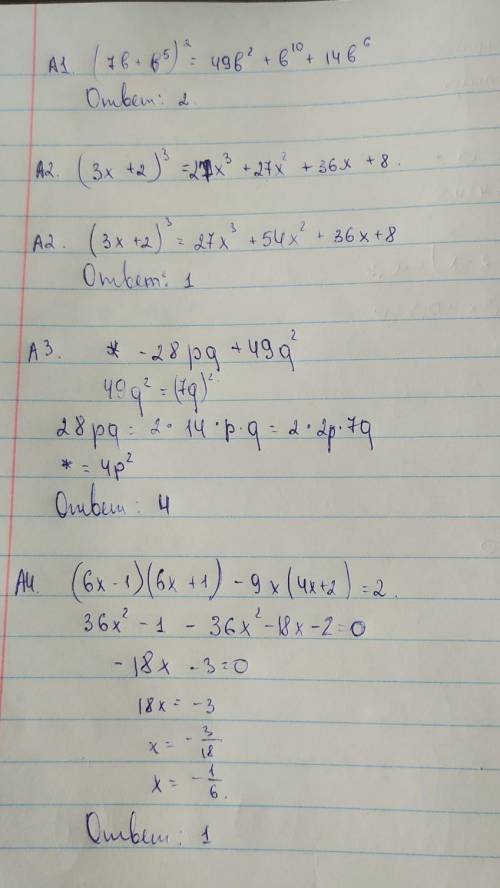 A1. (7b + b⁵)² = 49b² + b¹⁰ + 14b⁶
Ответ: 2
A2. (3x + 2)³ = 27x³ + 27x² + 36x + 8.
A2. (3x + 2)³ = 27x³ + 54x² + 36x + 8
Ответ: 1
A3. * - 28pq + 49q²
49q² = (7q)²
28pq = 2 · 14 · p · q = 2 · 2p · 7q
* = 4p²
Ответ: 4
A4. (6x - 1)(6x + 1) - 9x(4x + 2) = 2.
36x² - 1 - 36x² - 18x - 2 = 0
- 18x - 3 = 0
18x = - 3
x = - 3/18
x = - 1/6.
Ответ: 1